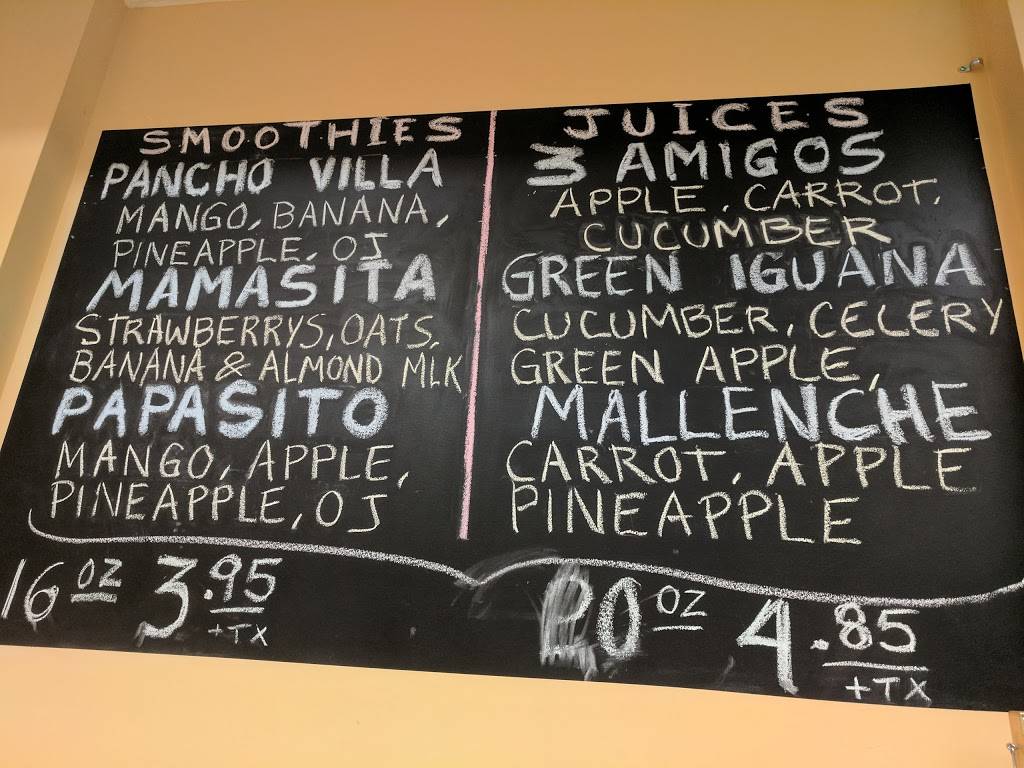 SMOOTHIES
PANCHO VILLA
MANGO, BANANA,
PINEAPPLE, OJ
MAMASITA
STRAWBERRYS, OATS,
BANANA & ALMOND MLK
PAPASITO
MANGO, APPLE,
PINEAPPLE, OJ
JUICES
3 AMIGOS
APPLE, CARROT,
CUCUMBER
GREEN IGUANA
CUCUMBER, CELERY
GREEN APPLE,
MALLENCHE
CARROT, APPLE
PINEAPPLE
16 OZ 3.95
+TX
20 OZ 4.85
+TX